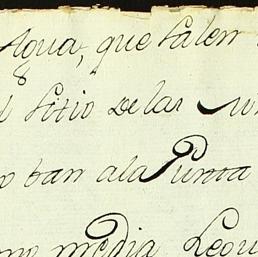 Agua, que salen
sitio de las
ban ala Punta
media Legu